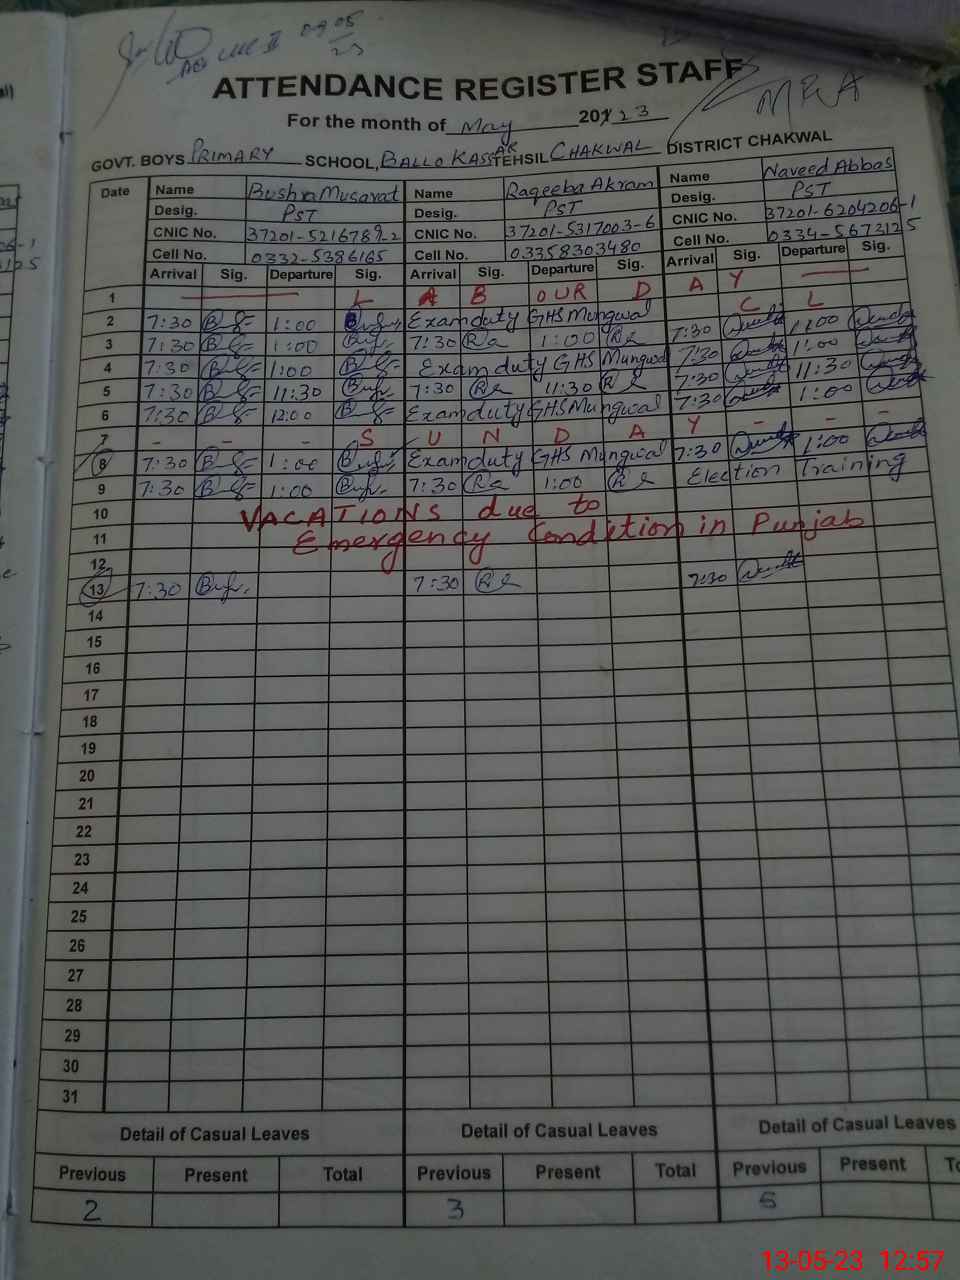 ACC III 09 05
23
ATTENDANCE REGISTER STAFF
M E A
For the month of May 20123
GOVT. BOYS PRIMARY SCHOOL, BALLO KASSAR TEHSIL CHAKWAL DISTRICT CHAKWAL
Date Name Bushra Musarat Name Raqeeba Akram Name Naveed Abbas
Desig. PST Desig. PST Desig. PST
CNIC No. 37201-5216789-2 CNIC No. 37201-5317003-6 CNIC No. 37201-6204206-1
Cell No. 0332-5386165 Cell No. 03358303480 Cell No. 0334-5673125
Arrival Sig. Departure Sig. Arrival Sig. Departure Sig. Arrival Sig. Departure Sig.
1 L A B OUR D A Y
2 7:30 1:00 Exam duty GHS Mungwal C L
3 7:30 1:00 7:30 Ra 1:00 Ra 7:30 1:00
4 7:30 1:00 Exam duty GHS Mungwal 7:30 1:00
5 7:30 11:30 7:30 Ra 11:30 Ra 7:30 11:30
6 7:30 12:00 Exam duty GHS Mungwal 7:30 1:00
7 - - - S U N D A Y - - -
8 7:30 1:00 Exam duty GHS Mungwal 7:30 1:00
9 7:30 1:00 7:30 Ra 1:00 Ra Election Training
10 VACATIONS due to
11 Emergency Condition in Punjab
12
13 7:30 7:30 Ra 7:30
14
15
16
17
18
19
20
21
22
23
24
25
26
27
28
29
30
31
Detail of Casual Leaves Detail of Casual Leaves Detail of Casual Leaves
Previous Present Total Previous Present Total Previous Present
2 3 5
13-05-23 12:57